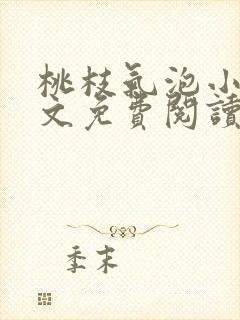 桃枝氣泡小
文免費閱讀
季末